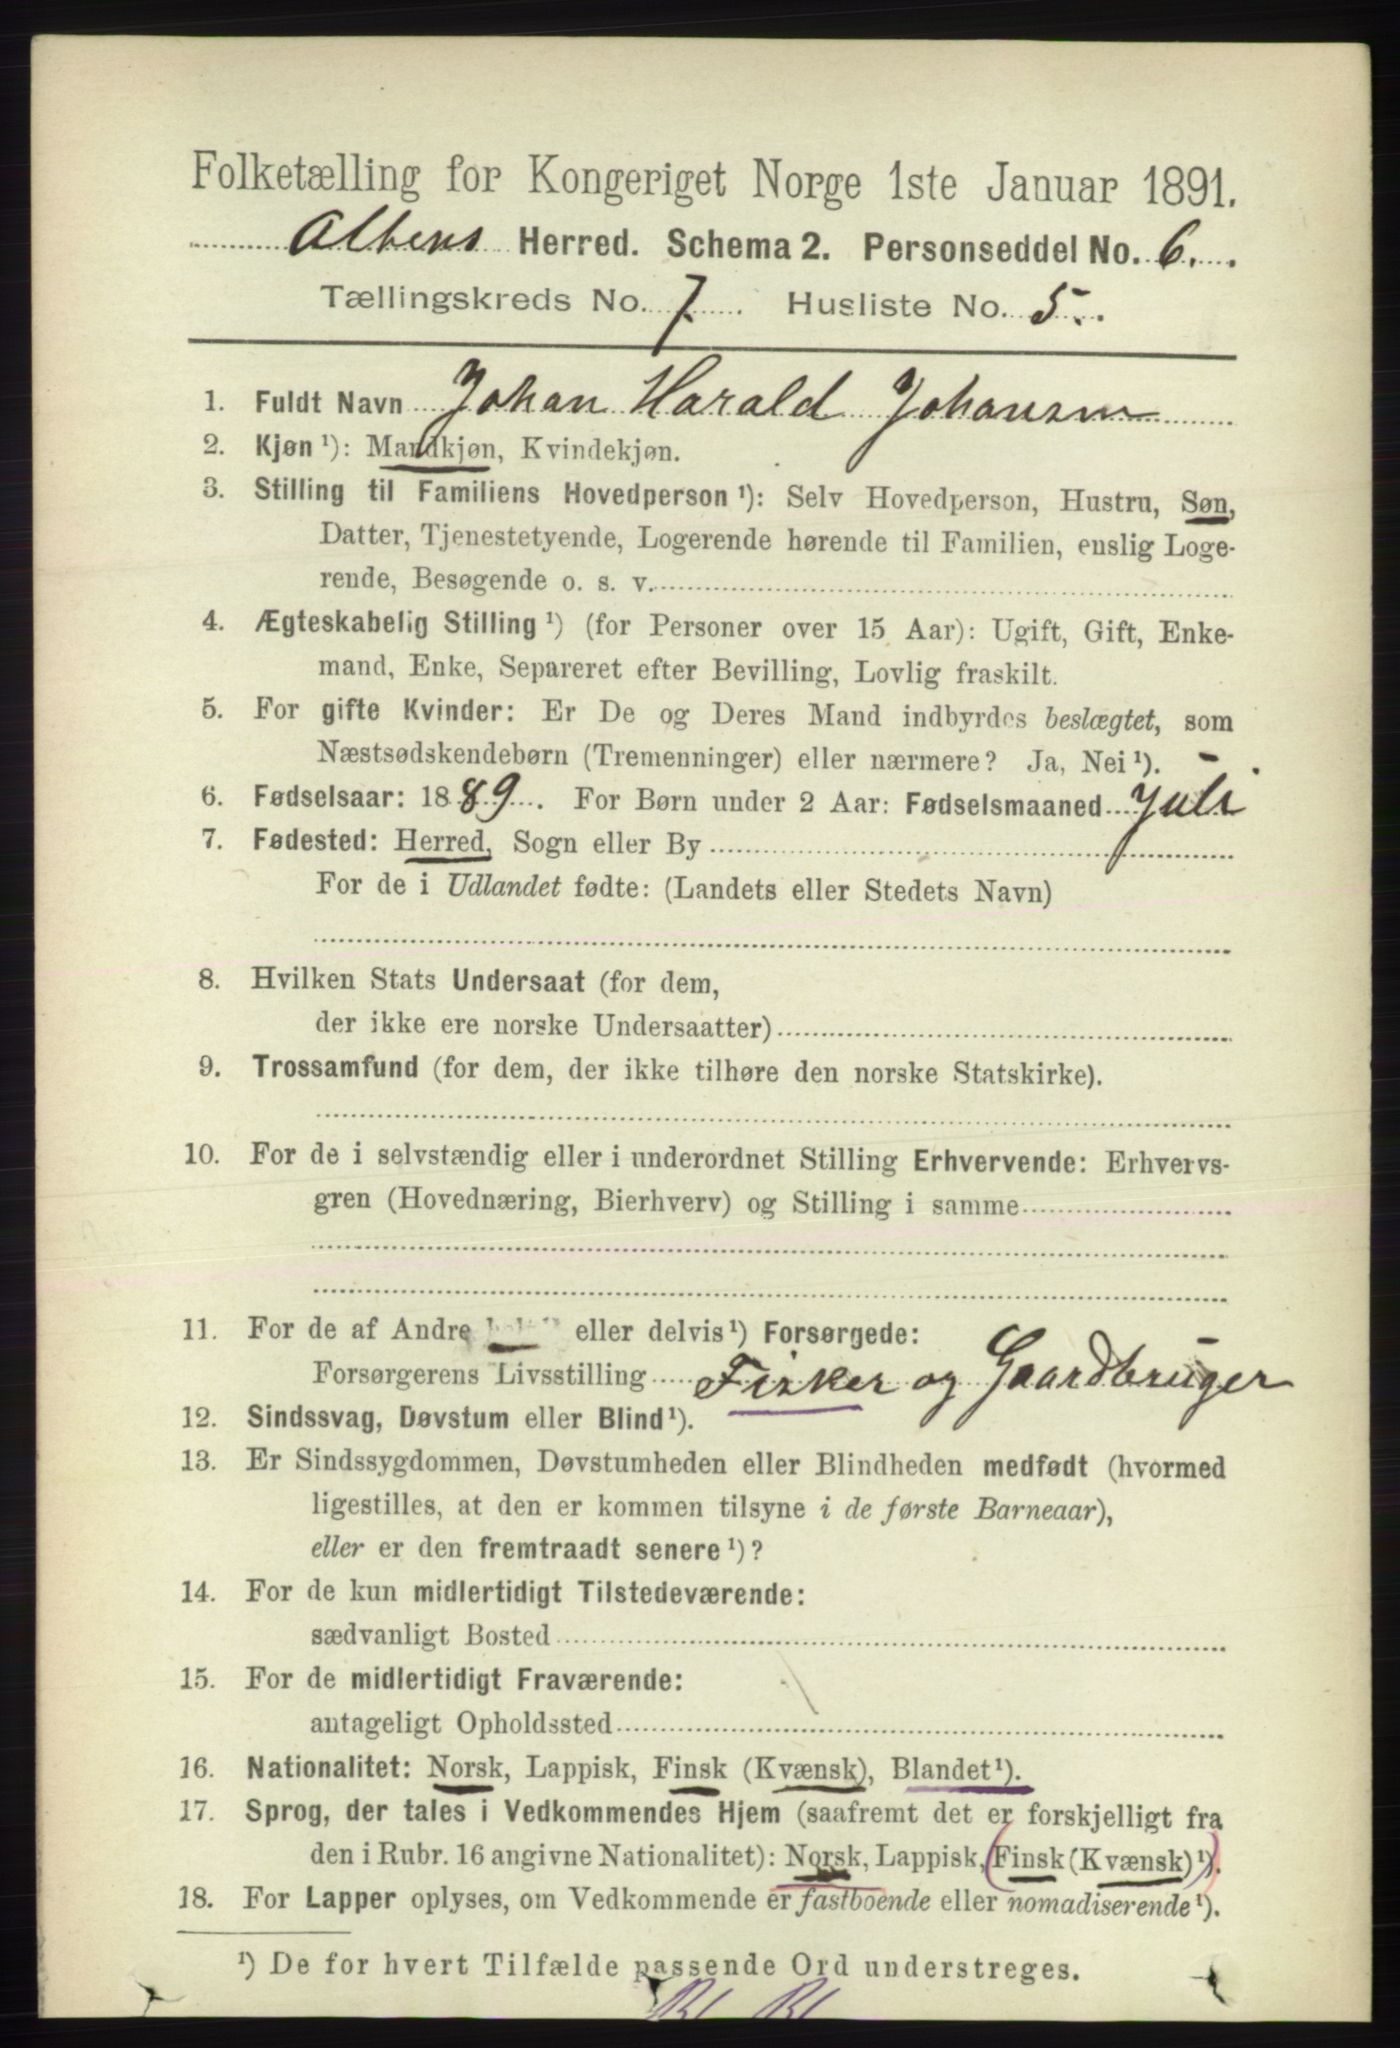 Folketælling for Kongeriget Norge 1ste Januar 1891.
Altens Herred. Schema 2. Personseddel No. 6.
Tællingskreds No. 7. Husliste No. 5.
1. Fuldt Navn Johan Harald Johansen
2. Kjøn ¹): Mandkjøn, Kvindekjøn.
3. Stilling til Familiens Hovedperson ¹): Selv Hovedperson, Hustru, Søn,
Datter, Tjenestetyende, Logerende hørende til Familien, enslig Loge-
rende, Besøgende o. s. v.
4. Ægteskabelig Stilling ¹) (for Personer over 15 Aar): Ugift, Gift, Enke-
mand, Enke, Separeret efter Bevilling, Lovlig fraskilt.
5. For gifte Kvinder: Er De og Deres Mand indbyrdes beslægtet, som
Næstsødskendebørn (Tremenninger) eller nærmere? Ja, Nei ¹).
6. Fødselsaar: 1889. For Børn under 2 Aar: Fødselsmaaned Juli
7. Fødested: Herred, Sogn eller By
For de i Udlandet fødte: (Landets eller Stedets Navn)
8. Hvilken Stats Undersaat (for dem,
der ikke ere norske Undersaatter)
9. Trossamfund (for dem, der ikke tilhøre den norske Statskirke).
10. For de i selvstændig eller i underordnet Stilling Erhvervende: Erhvervs-
gren (Hovednæring, Bierhverv) og Stilling i samme
11. For de af Andre eller delvis ¹) Forsørgede:
Forsørgerens Livsstilling Fisker og Gaardbruger
12. Sindssvag, Døvstum eller Blind ¹).
13. Er Sindssygdommen, Døvstumheden eller Blindheden medfødt (hvormed
ligestilles, at den er kommen tilsyne i de første Barneaar),
eller er den fremtraadt senere ¹)?
14. For de kun midlertidigt Tilstedeværende:
sædvanligt Bosted
15. For de midlertidigt Fraværende:
antageligt Opholdssted
16. Nationalitet: Norsk, Lappisk, Finsk (Kvænsk), Blandet ¹).
17. Sprog, der tales i Vedkommendes Hjem (saafremt det er forskjelligt fra
den i Rubr. 16 angivne Nationalitet): Norsk, Lappisk, Finsk (Kvænsk) ¹).
18. For Lapper oplyses, om Vedkommende er fastboende eller nomadiserende ¹).
¹) De for hvert Tilfælde passende Ord understreges.